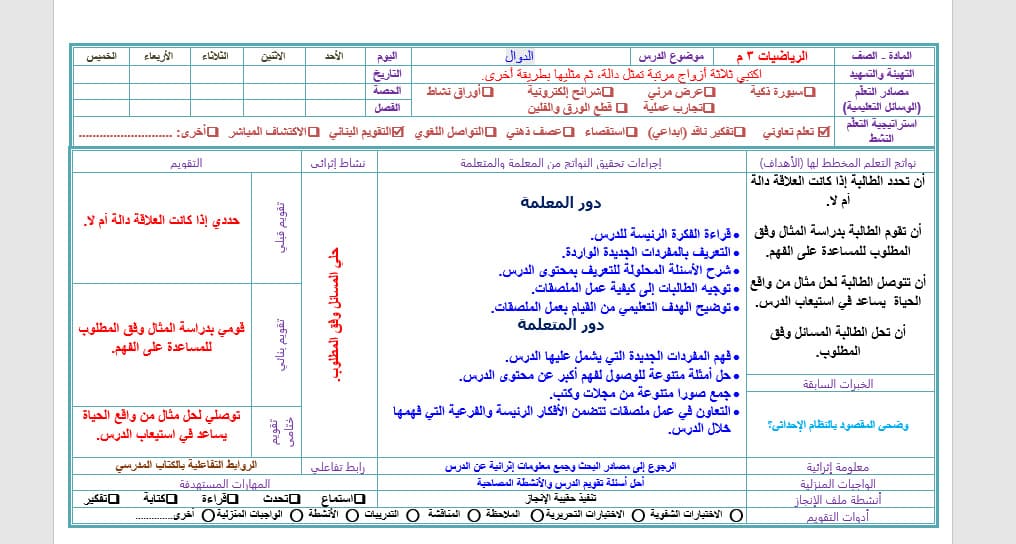 المادة - الصف الرياضيات ٣ م موضوع الدرس الدوال اليوم الأحد الاثنين الثلاثاء الأربعاء الخميس
التهيئة والتمهيد اكتبي ثلاثة أزواج مرتبة تمثل دالة، ثم مثليها بطريقة أخرى. التاريخ
مصادر التعلّم (الوسائل التعليمية) سبورة ذكية عرض مرئي شرائح إلكترونية أوراق نشاط الحصة
تجارب عملية قطع الورق والفلين الفصل
استراتيجية التعلّم النشط تعلم تعاوني تفكير ناقد (ابداعي) استقصاء عصف ذهني التواصل اللغوي التقويم البنائي الاكتشاف المباشر أخرى: ............................
نواتج التعلم المخطط لها (الأهداف) إجراءات تحقيق النواتج من المعلمة والمتعلمة نشاط إثرائي التقويم
أن تحدد الطالبة إذا كانت العلاقة دالة
أم لا.
أن تقوم الطالبة بدراسة المثال وفق
المطلوب للمساعدة على الفهم.
أن تتوصل الطالبة لحل مثال من واقع
الحياة يساعد في استيعاب الدرس.
أن تحل الطالبة المسائل وفق
المطلوب.
الخبرات السابقة
وضحي المقصود بالنظام الإحداثي؟
دور المعلمة
• قراءة الفكرة الرئيسة للدرس.
• التعريف بالمفردات الجديدة الواردة.
• شرح الأسئلة المحلولة للتعريف بمحتوى الدرس.
• توجيه الطالبات إلى كيفية عمل الملصقات.
• توضيح الهدف التعليمي من القيام بعمل الملصقات.
دور المتعلمة
• فهم المفردات الجديدة التي يشمل عليها الدرس.
• حل أمثلة متنوعة للوصول لفهم أكبر عن محتوى الدرس.
• جمع صورا متنوعة من مجلات وكتب.
• التعاون في عمل ملصقات تتضمن الأفكار الرئيسة والفرعية التي فهمها
خلال الدرس.
حلي المسائل وفق المطلوب.
تقويم قبلي
حددي إذا كانت العلاقة دالة أم لا.
تقويم بنائي
قومي بدراسة المثال وفق المطلوب
للمساعدة على الفهم.
تقويم ختامي
توصلي لحل مثال من واقع الحياة
يساعد في استيعاب الدرس.
معلومة إثرائية الرجوع إلى مصادر البحث وجمع معلومات إثرائية عن الدرس رابط تفاعلي الروابط التفاعلية بالكتاب المدرسي
الواجبات المنزلية أحل أسئلة تقويم الدرس والأنشطة المصاحبة المهارات المستهدفة
أنشطة ملف الإنجاز تنفيذ حقيبة الإنجاز استماع تحدث قراءة كتابة تفكير
أدوات التقويم الاختبارات الشفوية الاختبارات التحريرية الملاحظة المناقشة التدريبات الأنشطة الواجبات المنزلية أخرى...............